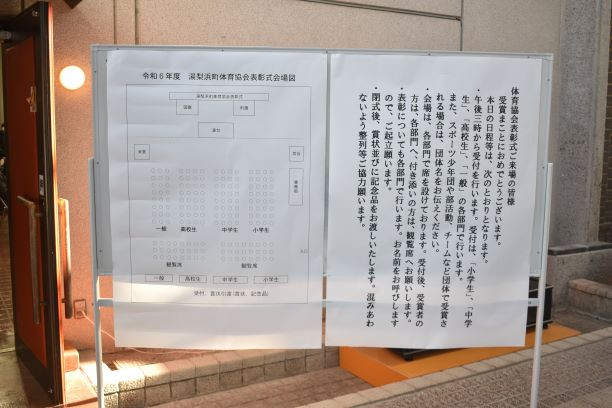 令和6年度　湯梨浜町体育協会表彰式会場図
湯梨浜町体育協会表彰式
国旗
町旗
演台
来賓
司会
一般
高校生
中学生
小学生
入口
観覧席
観覧席
一般
高校生
中学生
小学生
受付、賞状引渡(賞状、記念品)
体育協会表彰式ご来場の皆様
受賞まことにおめでとうございます。
本日の日程等は、次のとおりとなります。
・午後三時から受付を行います。受付は、「小学生」、「中学
生」、「高校生」、「一般」の各部門で行います。
また、スポーツ少年団や部活動、チームなど団体で受賞さ
れる場合は、団体名をお伝えください。
・会場は、各部門で席を設けております。受付後、受賞者の
方は、各部門へ、付き添いの方は、観覧席へお願いします。
・表彰についても各部門で行います。お名前をお呼びします
ので、ご起立願います。
・閉式後、賞状並びに記念品をお渡しいたします。混みあわ
ないよう整列等ご協力願います。